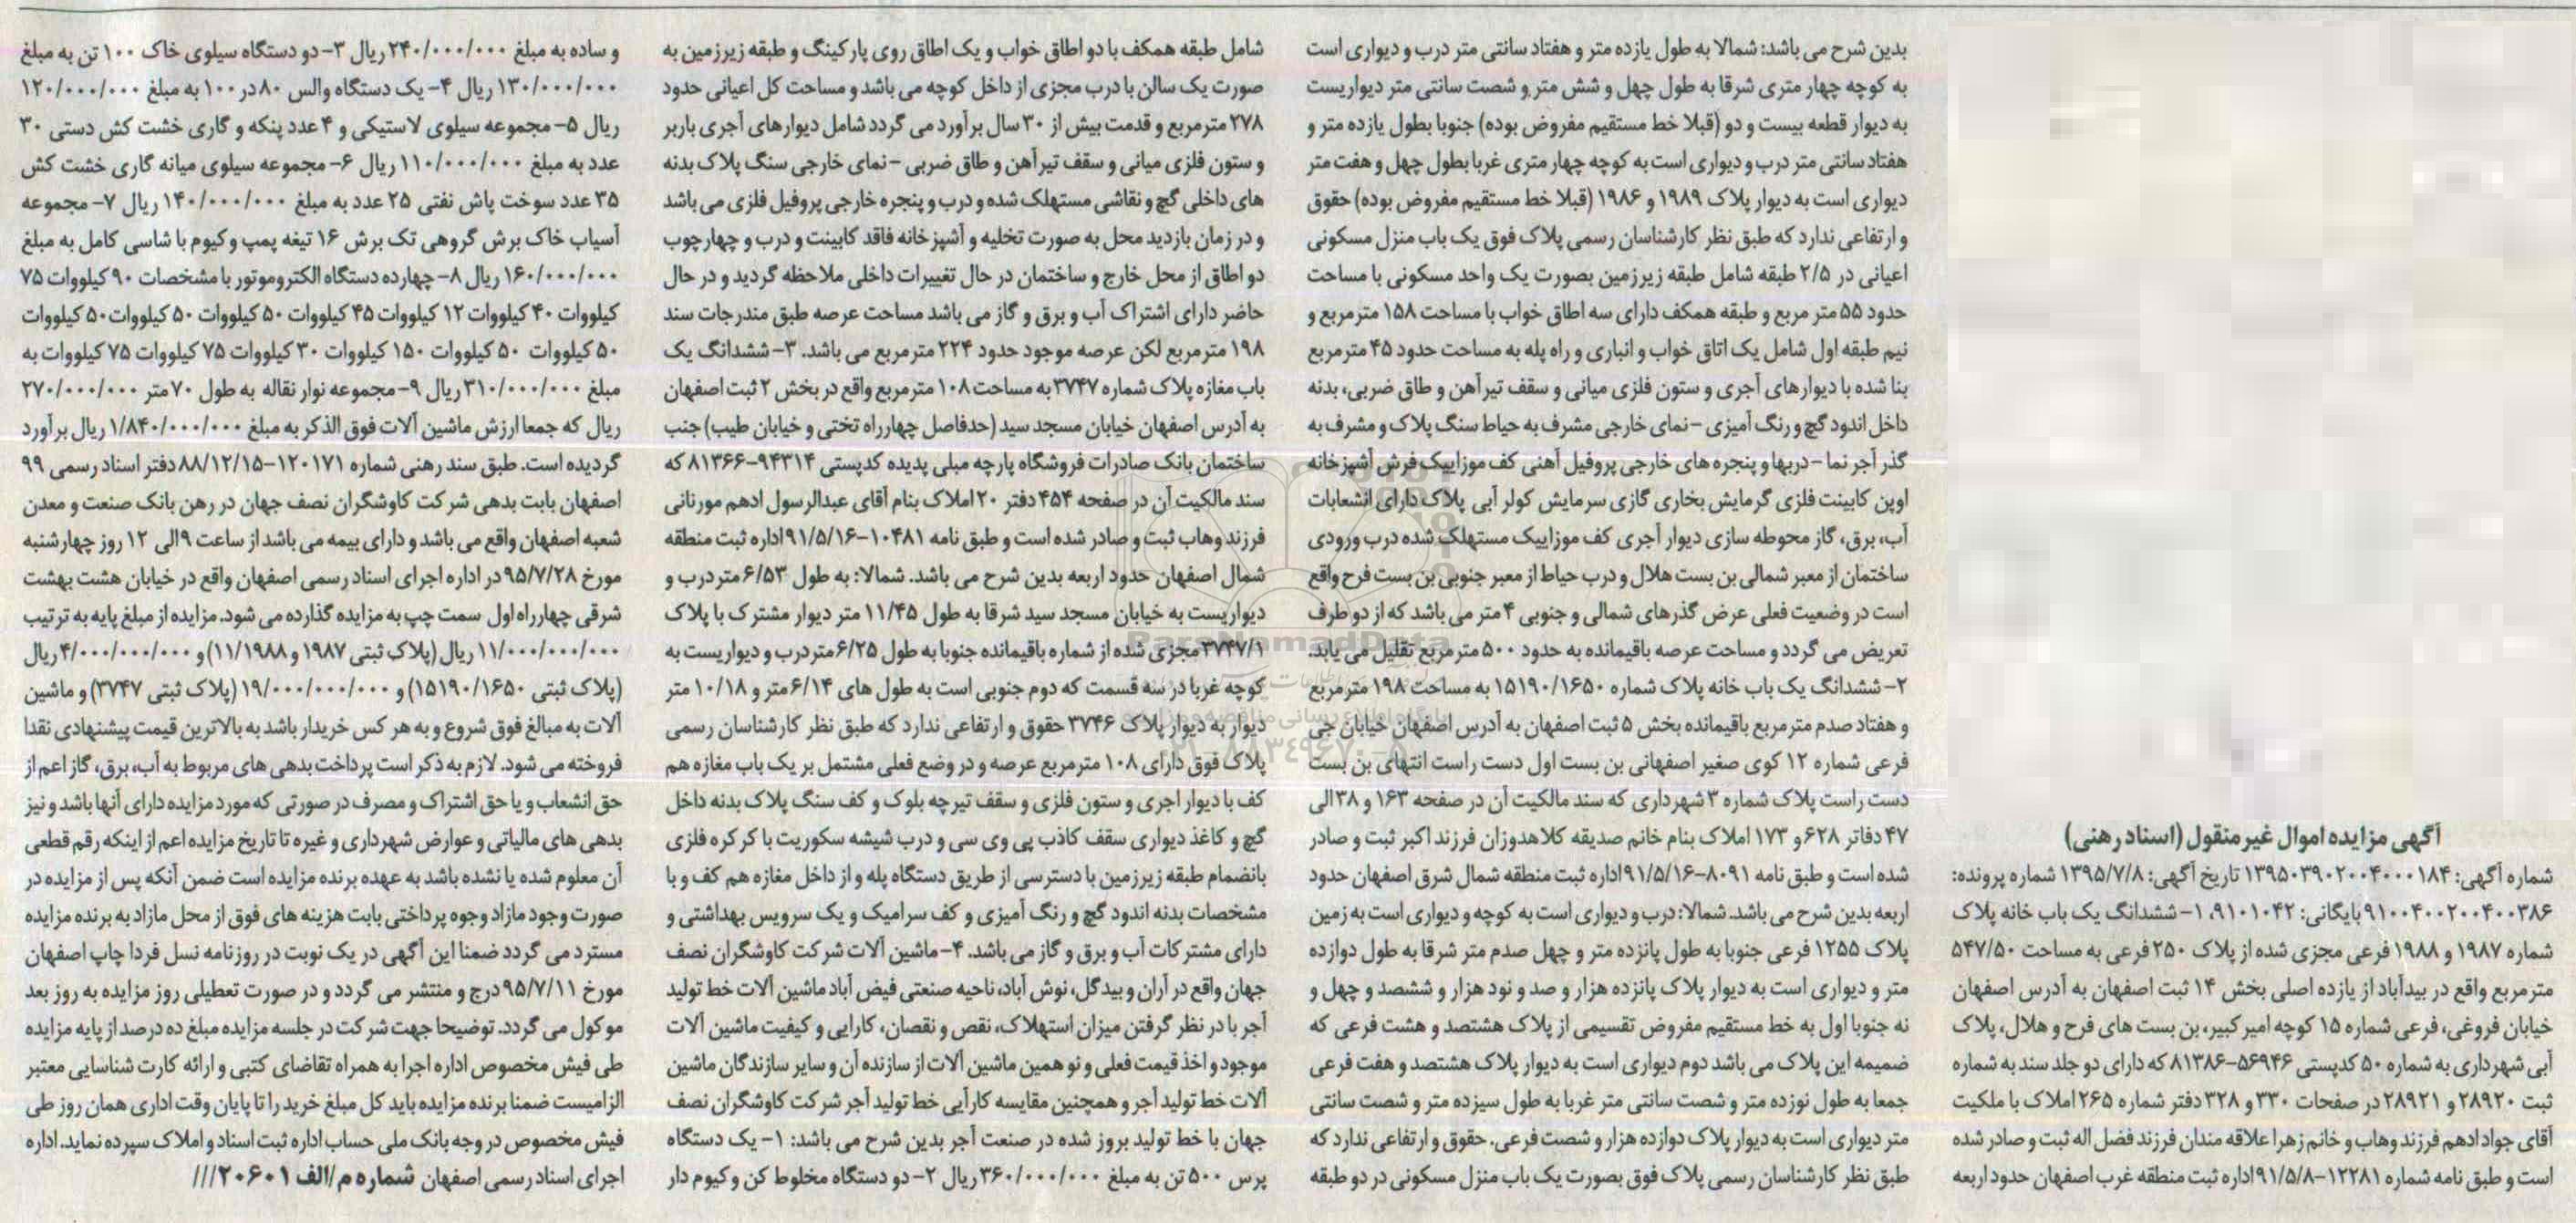 آگهی مزایده اموال غیر منقول (اسناد رهنی)
شماره آگهی: ۱۳۹۵۰۳۹۰۲۰۰۴۰۰۰۱۸۴ تاریخ آگهی: ۱۳۹۵/۷/۸ شماره پرونده:
۹۱۰۰۴۰۰۲۰۰۴۰۰۳۸۶ بایگانی: ۹۱۰۱۰۴۲، ۱- ششدانگ یک باب خانه پلاک
شماره ۱۹۸۷ و ۱۹۸۸ فرعی مجزی شده از پلاک ۲۵۰ فرعی به مساحت ۵۴۷/۵۰
مترمربع واقع در بیدآباد از یازده اصلی بخش ۱۴ ثبت اصفهان به آدرس اصفهان
خیابان فروغی، فرعی شماره ۱۵ کوچه امیرکبیر، بن بست های فرح و هلال، پلاک
آبی شهرداری به شماره ۵۰ کدپستی ۵۶۹۴۶-۸۱۳۸۶ که دارای دو جلد سند به شماره
ثبت ۲۸۹۲۰ و ۲۸۹۲۱ در صفحات ۳۳۰ و ۳۲۸ دفتر شماره ۲۶۵ املاک با ملکیت
آقای جواد ادهم فرزند وهاب و خانم زهرا علاقه مندان فرزند فضل اله ثبت و صادر شده
است و طبق نامه شماره ۱۲۲۸۱-۹۱/۵/۸ اداره ثبت منطقه غرب اصفهان حدود اربعه
بدین شرح می باشد: شمالا به طول یازده متر و هفتاد سانتی متر درب و دیواری است
به کوچه چهار متری شرقا به طول چهل و شش متر و شصت سانتی متر دیواریست
به دیوار قطعه بیست و دو (قبلا خط مستقیم مفروض بوده) جنوبا بطول یازده متر و
هفتاد سانتی متر درب و دیواری است به کوچه چهار متری غربا بطول چهل و هفت متر
دیواری است به دیوار پلاک ۱۹۸۹ و ۱۹۸۶ (قبلا خط مستقیم مفروض بوده) حقوق
و ارتفاعی ندارد که طبق نظر کارشناسان رسمی پلاک فوق یک باب منزل مسکونی
اعیانی در ۲/۵ طبقه شامل طبقه زیرزمین بصورت یک واحد مسکونی با مساحت
حدود ۵۵ متر مربع و طبقه همکف دارای سه اطاق خواب با مساحت ۱۵۸ مترمربع و
نیم طبقه اول شامل یک اتاق خواب و انباری و راه پله به مساحت حدود ۴۵ مترمربع
بنا شده با دیوارهای آجری و ستون فلزی میانی و سقف تیرآهن و طاق ضربی، بدنه
داخل اندود گچ و رنگ آمیزی – نمای خارجی مشرف به حیاط سنگ پلاک و مشرف به
گذر آجر نما – دربها و پنجره های خارجی پروفیل آهنی کف موزاییک فرش آشپزخانه
اوپن کابینت فلزی گرمایش بخاری گازی سرمایش کولر آبی پلاک دارای انشعابات
آب، برق، گاز محوطه سازی دیوار آجری کف موزاییک مستهلک شده درب ورودی
ساختمان از معبر شمالی بن بست هلال و درب حیاط از معبر جنوبی بن بست فرح واقع
است در وضعیت فعلی عرض گذرهای شمالی و جنوبی ۴ متر می باشد که از دو طرف
تعریض می گردد و مساحت عرصه باقیمانده به حدود ۵۰۰ مترمربع تقلیل می یابد.
۲- ششدانگ یک باب خانه پلاک شماره ۱۵۱۹۰/۱۶۵۰ به مساحت ۱۹۸ مترمربع
و هفتاد صدم مترمربع باقیمانده بخش ۵ ثبت اصفهان به آدرس اصفهان خیابان جی
فرعی شماره ۱۲ کوی صغیر اصفهانی بن بست اول دست راست انتهای بن بست
دست راست پلاک شماره ۳ شهرداری که سند مالکیت آن در صفحه ۱۶۳ و ۳۸ الی
۴۷ دفاتر ۶۲۸ و ۱۷۳ املاک بنام خانم صدیقه کلاهدوزان فرزند اکبر ثبت و صادر
شده است و طبق نامه ۸۰۹۱-۹۱/۵/۱۶ اداره ثبت منطقه شمال شرق اصفهان حدود
اربعه بدین شرح می باشد. شمالا: درب و دیواری است به کوچه و دیواری است به زمین
پلاک ۱۲۵۵ فرعی جنوبا به طول پانزده متر و چهل صدم متر شرقا به طول دوازده
متر و دیواری است به دیوار پلاک پانزده هزار و صد و نود هزار و ششصد و چهل و
نه جنوبا اول به خط مستقیم مفروض تقسیمی از پلاک هشتصد و هشت فرعی که
ضمیمه این پلاک می باشد دوم دیواری است به دیوار پلاک هشتصد و هفت فرعی
جمعا به طول نوزده متر و شصت سانتی متر غربا به طول سیزده متر و شصت سانتی
متر دیواری است به دیوار پلاک دوازده هزار و شصت فرعی. حقوق و ارتفاعی ندارد که
طبق نظر کارشناسان رسمی پلاک فوق بصورت یک باب منزل مسکونی در دو طبقه
شامل طبقه همکف با دو اطاق خواب و یک اطاق روی پارکینگ و طبقه زیرزمین به
صورت یک سالن با درب مجزی از داخل کوچه می باشد و مساحت کل اعیانی حدود
۲۷۸ مترمربع و قدمت بیش از ۳۰ سال برآورد می گردد شامل دیوارهای آجری باربر
و ستون فلزی میانی و سقف تیرآهن و طاق ضربی – نمای خارجی سنگ پلاک بدنه
های داخلی گچ و نقاشی مستهلک شده و درب و پنجره خارجی پروفیل فلزی می باشد
و در زمان بازدید محل به صورت تخلیه و آشپزخانه فاقد کابینت و درب و چهارچوب
دو اطاق از محل خارج و ساختمان در حال تغییرات داخلی ملاحظه گردید و در حال
حاضر دارای اشتراک آب و برق و گاز می باشد مساحت عرصه طبق مندرجات سند
۱۹۸ مترمربع لکن عرصه موجود حدود ۲۲۴ مترمربع می باشد. ۳- ششدانگ یک
باب مغازه پلاک شماره ۳۷۴۷ به مساحت ۱۰۸ مترمربع واقع در بخش ۲ ثبت اصفهان
به آدرس اصفهان خیابان مسجد سید (حدفاصل چهارراه تختی و خیابان طیب) جنب
ساختمان بانک صادرات فروشگاه پارچه مبلی پدیده کدپستی ۹۴۳۱۴-۸۱۳۶۶ که
سند مالکیت آن در صفحه ۴۵۴ دفتر ۲۰ املاک بنام آقای عبدالرسول ادهم مورنانی
فرزند وهاب ثبت و صادر شده است و طبق نامه ۱۰۴۸۱-۹۱/۵/۱۶ اداره ثبت منطقه
شمال اصفهان حدود اربعه بدین شرح می باشد. شمالا: به طول ۶/۵۳ متر درب و
دیواریست به خیابان مسجد سید شرقا به طول ۱۱/۴۵ متر دیوار مشترک با پلاک
۳۷۴۷/۱ مجزی شده از شماره باقیمانده جنوبا به طول ۶/۲۵ متر درب و دیواریست به
کوچه غربا در سه قسمت که دوم جنوبی است به طول های ۶/۱۴ متر و ۱۰/۱۸ متر
دیوار به دیوار پلاک ۳۷۴۶ حقوق و ارتفاعی ندارد که طبق نظر کارشناسان رسمی
پلاک فوق دارای ۱۰۸ مترمربع عرصه و در وضع فعلی مشتمل بر یک باب مغازه هم
کف با دیوار اجری و ستون فلزی و سقف تیرچه بلوک و کف سنگ پلاک بدنه داخل
گچ و کاغذ دیواری سقف کاذب پی وی سی و درب شیشه سکوریت با کرکره فلزی
بانضمام طبقه زیرزمین با دسترسی از طریق دستگاه پله و از داخل مغازه هم کف و با
مشخصات بدنه اندود گچ و رنگ آمیزی و کف سرامیک و یک سرویس بهداشتی و
دارای مشترکات آب و برق و گاز می باشد. ۴- ماشین آلات شرکت کاوشگران نصف
جهان واقع در آران و بیدگل، نوش آباد، ناحیه صنعتی فیض آباد ماشین آلات خط تولید
آجر با در نظر گرفتن میزان استهلاک، نقص و نقصان، کارایی و کیفیت ماشین آلات
موجود و اخذ قیمت فعلی و نو همین ماشین آلات از سازنده آن و سایر سازندگان ماشین
آلات خط تولید آجر و همچنین مقایسه کارآیی خط تولید آجر شرکت کاوشگران نصف
جهان با خط تولید بروز شده در صنعت آجر بدین شرح می باشد: ۱- یک دستگاه
پرس ۵۰۰ تن به مبلغ ۳۶۰/۰۰۰/۰۰۰ ریال ۲- دو دستگاه مخلوط کن و کیوم دار
و ساده به مبلغ ۲۴۰/۰۰۰/۰۰۰ ریال ۳- دو دستگاه سیلوی خاک ۱۰۰ تن به مبلغ
۱۳۰/۰۰۰/۰۰۰ ریال ۴- یک دستگاه والس ۸۰ در ۱۰۰ به مبلغ ۱۲۰/۰۰۰/۰۰۰
ریال ۵- مجموعه سیلوی لاستیکی و ۴ عدد پنکه و گاری خشت کش دستی ۳۰
عدد به مبلغ ۱۱۰/۰۰۰/۰۰۰ ریال ۶- مجموعه سیلوی میانه گاری خشت کش
۳۵ عدد سوخت پاش نفتی ۲۵ عدد به مبلغ ۱۴۰/۰۰۰/۰۰۰ ریال ۷- مجموعه
آسیاب خاک برش گروهی تک برش ۱۶ تیغه پمپ وکیوم با شاسی کامل به مبلغ
۱۶۰/۰۰۰/۰۰۰ ریال ۸- چهارده دستگاه الکتروموتور با مشخصات ۹۰ کیلووات ۷۵
کیلووات ۴۰ کیلووات ۱۲ کیلووات ۴۵ کیلووات ۵۰ کیلووات ۵۰ کیلووات ۵۰ کیلووات
۵۰ کیلووات ۵۰ کیلووات ۱۵۰ کیلووات ۳۰ کیلووات ۷۵ کیلووات ۷۵ کیلووات به
مبلغ ۳۱۰/۰۰۰/۰۰۰ ریال ۹- مجموعه نوار نقاله به طول ۷۰ متر ۲۷۰/۰۰۰/۰۰۰
ریال که جمعا ارزش ماشین آلات فوق الذکر به مبلغ ۱/۸۴۰/۰۰۰/۰۰۰ ریال برآورد
گردیده است. طبق سند رهنی شماره ۱۲۰۱۷۱-۸۸/۱۲/۱۵ دفتر اسناد رسمی ۹۹
اصفهان بابت بدهی شرکت کاوشگران نصف جهان در رهن بانک صنعت و معدن
شعبه اصفهان واقع می باشد و دارای بیمه می باشد از ساعت ۹ الی ۱۲ روز چهارشنبه
مورخ ۹۵/۷/۲۸ در اداره اجرای اسناد رسمی اصفهان واقع در خیابان هشت بهشت
شرقی چهارراه اول سمت چپ به مزایده گذارده می شود. مزایده از مبلغ پایه به ترتیب
۱۱/۰۰۰/۰۰۰/۰۰۰ ریال (پلاک ثبتی ۱۹۸۷ و ۱۱/۱۹۸۸) و ۴/۰۰۰/۰۰۰/۰۰۰ ریال
(پلاک ثبتی ۱۵۱۹۰/۱۶۵۰) و ۱۹/۰۰۰/۰۰۰/۰۰۰ (پلاک ثبتی ۳۷۴۷) و ماشین
آلات به مبالغ فوق شروع و به هر کس خریدار باشد به بالاترین قیمت پیشنهادی نقدا
فروخته می شود. لازم به ذکر است پرداخت بدهی های مربوط به آب، برق، گاز اعم از
حق انشعاب و یا حق اشتراک و مصرف در صورتی که مورد مزایده دارای آنها باشد و نیز
بدهی های مالیاتی و عوارض شهرداری و غیره تا تاریخ مزایده اعم از اینکه رقم قطعی
آن معلوم شده یا نشده باشد به عهده برنده مزایده است ضمن آنکه پس از مزایده در
صورت وجود مازاد وجوه پرداختی بابت هزینه های فوق از محل مازاد به برنده مزایده
مسترد می گردد ضمنا این آگهی در یک نوبت در روزنامه نسل فردا چاپ اصفهان
مورخ ۹۵/۷/۱۱ درج و منتشر می گردد و در صورت تعطیلی روز مزایده به روز بعد
موکول می گردد. توضیحا جهت شرکت در جلسه مزایده مبلغ ده درصد از پایه مزایده
طی فیش مخصوص اداره اجرا به همراه تقاضای کتبی و ارائه کارت شناسایی معتبر
الزامیست ضمنا برنده مزایده باید کل مبلغ خرید را تا پایان وقت اداری همان روز طی
فیش مخصوص در وجه بانک ملی حساب اداره ثبت اسناد و املاک سپرده نماید. اداره
اجرای اسناد رسمی اصفهان شماره م/الف ۲۰۶۰۱///
ParsNamadData
۰۲۱-۸۸۳۴۹۶۷۰-۵